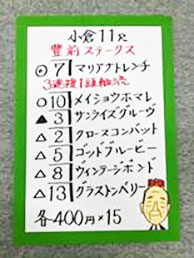 小倉11R
豊前ステークス
◎7 マリアナトレンチ
3連複1頭軸流
○10 メイショウホマレ
▲3 サンライズグルーヴ
△2 クロースコンバット
△5 ゴッドブルービー
△8 ヴィンテージボンド
△13 グラストンベリー
各400円×15